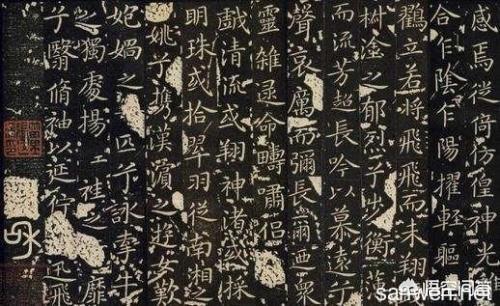 感焉徙倚傍偟神光
合乍陰乍陽擢輕軀
鶴立若將飛飛而未翔
椒塗之郁烈步衡薄
而流芳超長吟以慕遠兮
聲哀厲而彌長爾迺衆
靈雜遝命疇嘯侶
戲清流或翔神渚或採
明珠或拾翠羽從南湘
兮攜漢濱之遊女歎
媧之匹兮詠牽牛
之獨處揚袿之靡
兮翳脩袖以延佇迅飛
悟空问答
sanwen.net